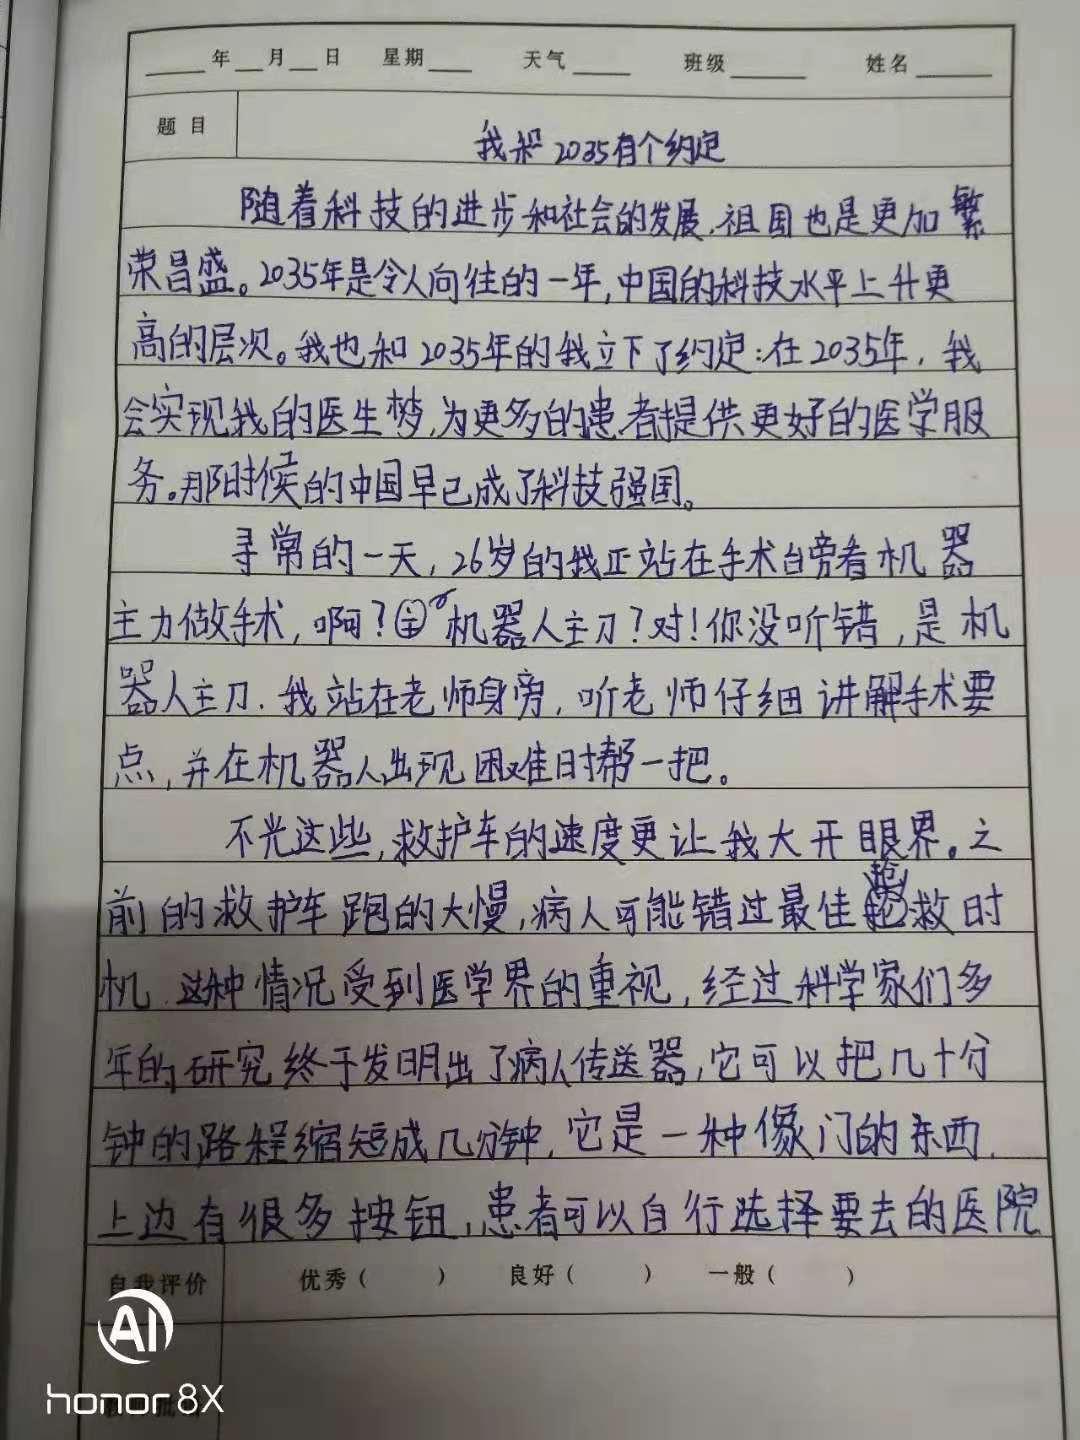 年 月 日 星期 天气 班级 姓名
题目
我和2035有个约定
随着科技的进步和社会的发展,祖国也是更加繁
荣昌盛。2035年是令人向往的一年,中国的科技水平上升更
高的层次。我也和2035年的我立下了约定:在2035年,我
会实现我的医生梦,为更多的患者提供更好的医学服
务。那时候的中国早已成了科技强国。
寻常的一天,26岁的我正站在手术台旁看机器
主力做手术,啊?机器人主刀?对!你没听错,是机
器人主刀.我站在老师身旁,听老师仔细讲解手术要
点,并在机器人出现困难时帮一把。
不光这些,救护车的速度更让我大开眼界。之
前的救护车跑的大慢,病人可能错过最佳抢救时
机.这种情况受到医学界的重视,经过科学家们多
年的研究终于发明出了病人传送器,它可以把几十分
钟的路程缩短成几分钟,它是一种像门的东西.
上边有很多按钮,患者可以自行选择要去的医院
自我评价 优秀( ) 良好( ) 一般( )
AI
honor 8X